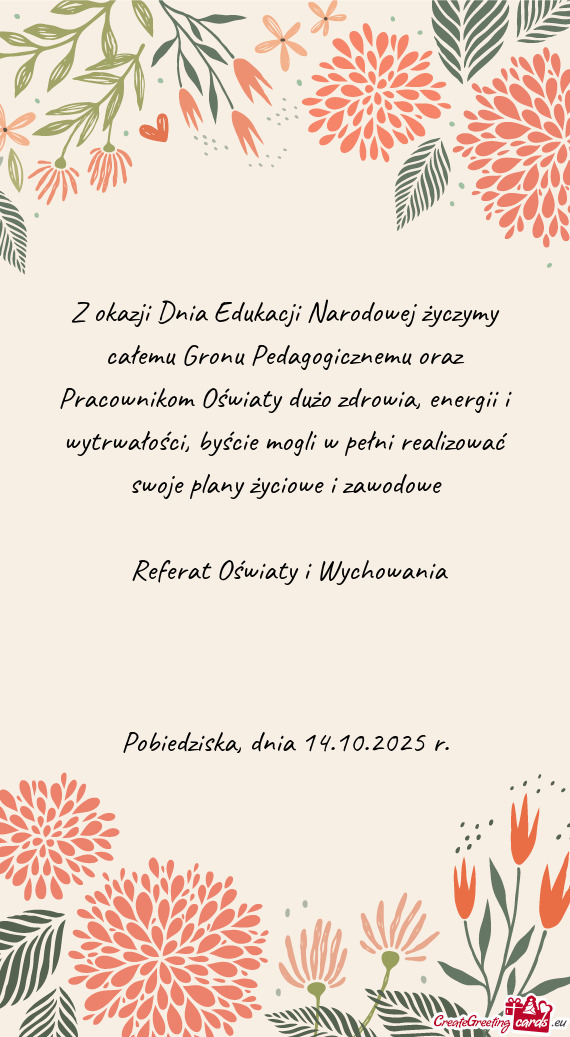 Z okazji Dnia Edukacji Narodowej życzymy
całemu Gronu Pedagogicznemu oraz
Pracownikom Oświaty dużo zdrowia, energii i
wytrwałości, byście mogli w pełni realizować
swoje plany życiowe i zawodowe
Referat Oświaty i Wychowania
Pobiedziska, dnia 14.10.2025 r.
CreateGreeting cards .eu